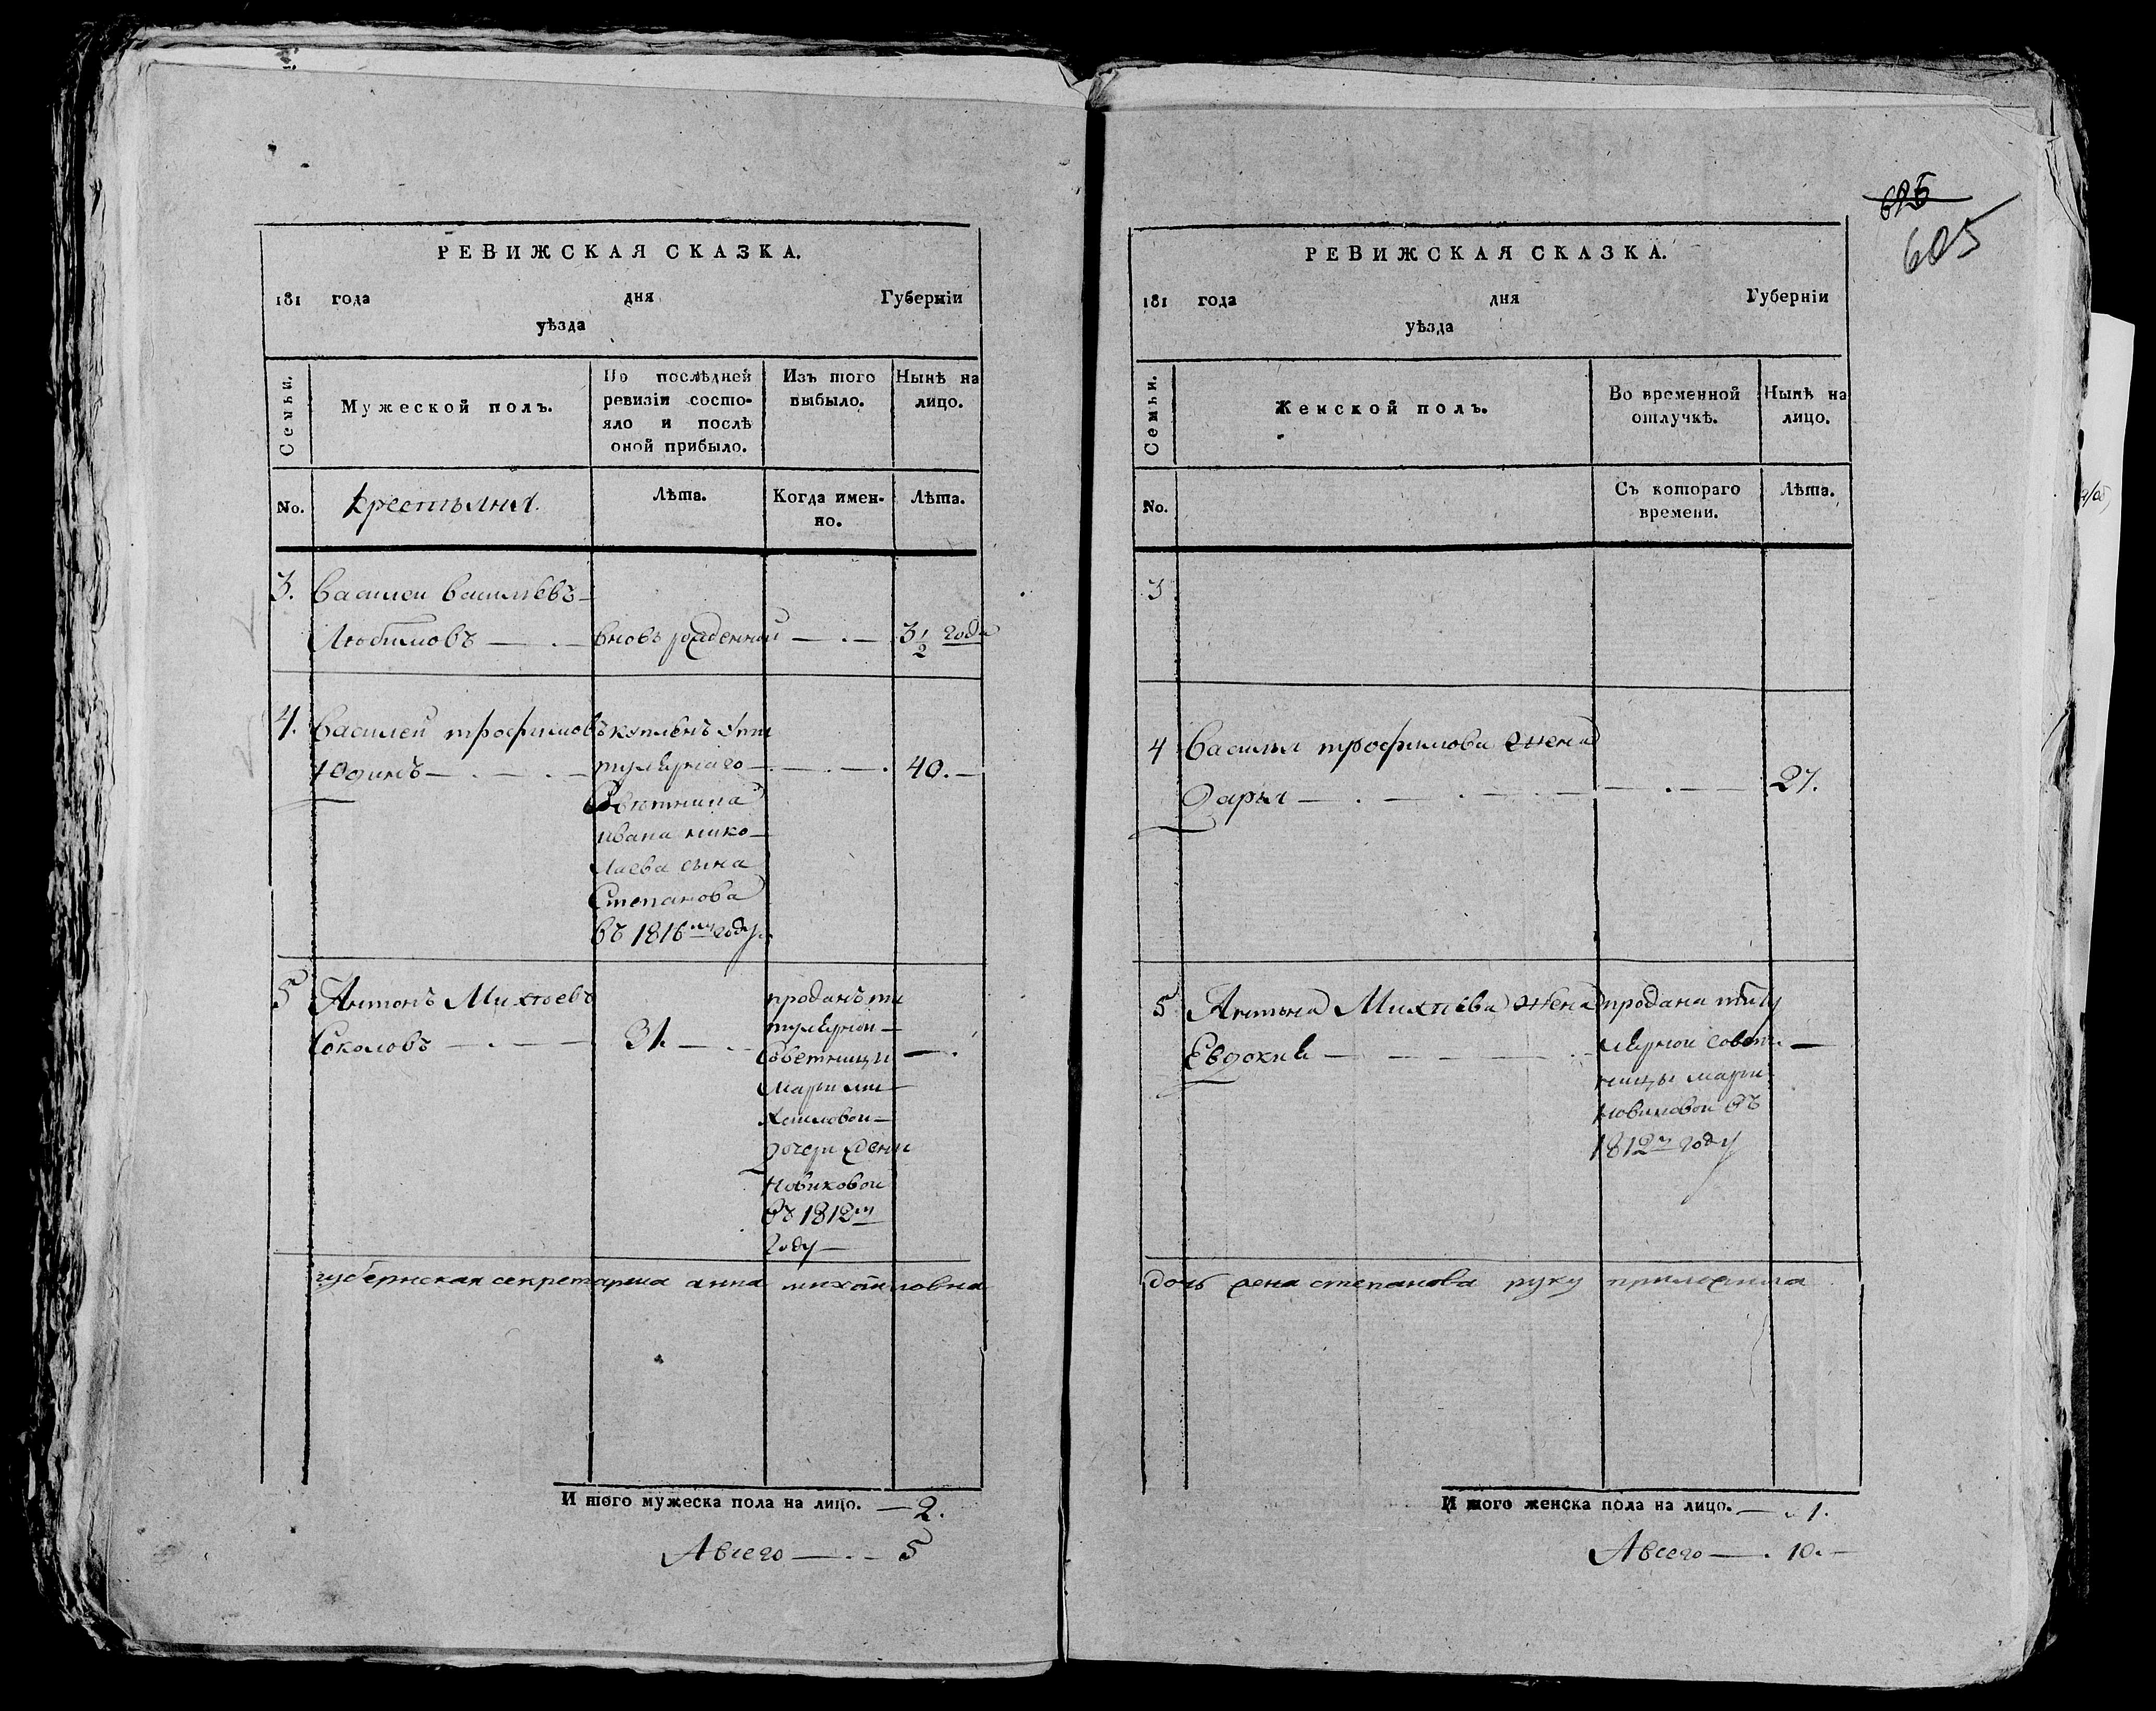 РЕВИЖСКАЯ СКАЗКА.
181 года дня Губерніи
уѣзда
Семьи.
Мужеской полъ.
По послѣдней
ревизіи состо-
яло и послѣ
оной прибыло.
Изъ того
выбыло.
Нынѣ на
лицо.
No.
Крестьяня.
Лѣта.
Когда имен-
но.
Лѣта.
3. Василеи Васильевъ
Любимовъ вновь рожденной 3 1/2 года
4. Василеи трофимовъ купленъ У ти
Юдинъ тулярнаго 40.
Советника
ивана нико
лаева сына
Степанова
въ 1816м году
5 Антонъ Михѣевъ проданъ ти
Соколовъ 31. тулярнои
Советницы
Марьи ми
хаиловои
дочери жени
Новиковои
въ 1812м
году
губернская секретарша анна михаиловна
И того мужеска пола на лицо. 2.
Авсего 5
625
605
РЕВИЖСКАЯ СКАЗКА.
181 года дня Губерніи
уѣзда
Семьи.
Женской полъ.
Во временной
отлучкѣ.
Нынѣ на
лицо.
No.
Съ котораго
времени.
Лѣта.
3
4 Василья трофимова жена
Дарья 27.
5 Антона Михѣева жена продана титу
Евдокия лярнои совет
ницы марьи
новиковои въ
1812м году
дочь жена степанова руку приложила
И того женска пола на лицо. 1.
Авсего 10.